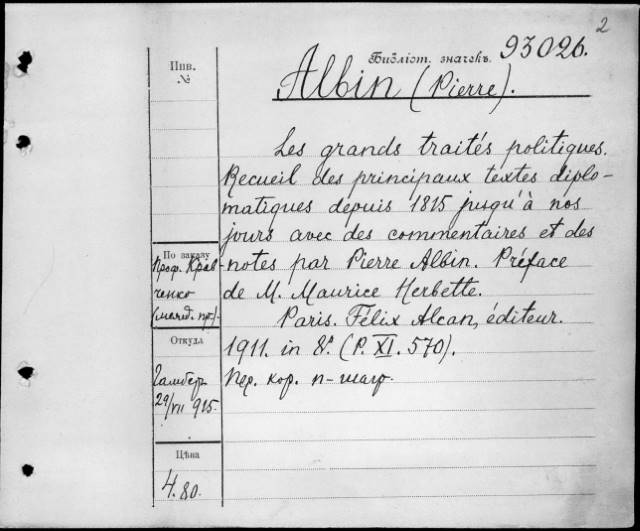 2
Библіот. значекъ 93026.
Инв.
№
Albin (Pierre).
Les grands traités politiques.
Recueil des principaux textes diplo-
matiques depuis 1815 jusqu'à nos
jours avec des commentaires et des
notes par Pierre Albin. Préface
de M. Maurice Herbette.
Paris. Félix Alcan, éditeur.
1911. in 8°. (P. XI. 570).
Пер. кор. п-
По заказу
Проф. Крав-
ченко
Откуда
29/VII 915.
Цѣна
4.80.